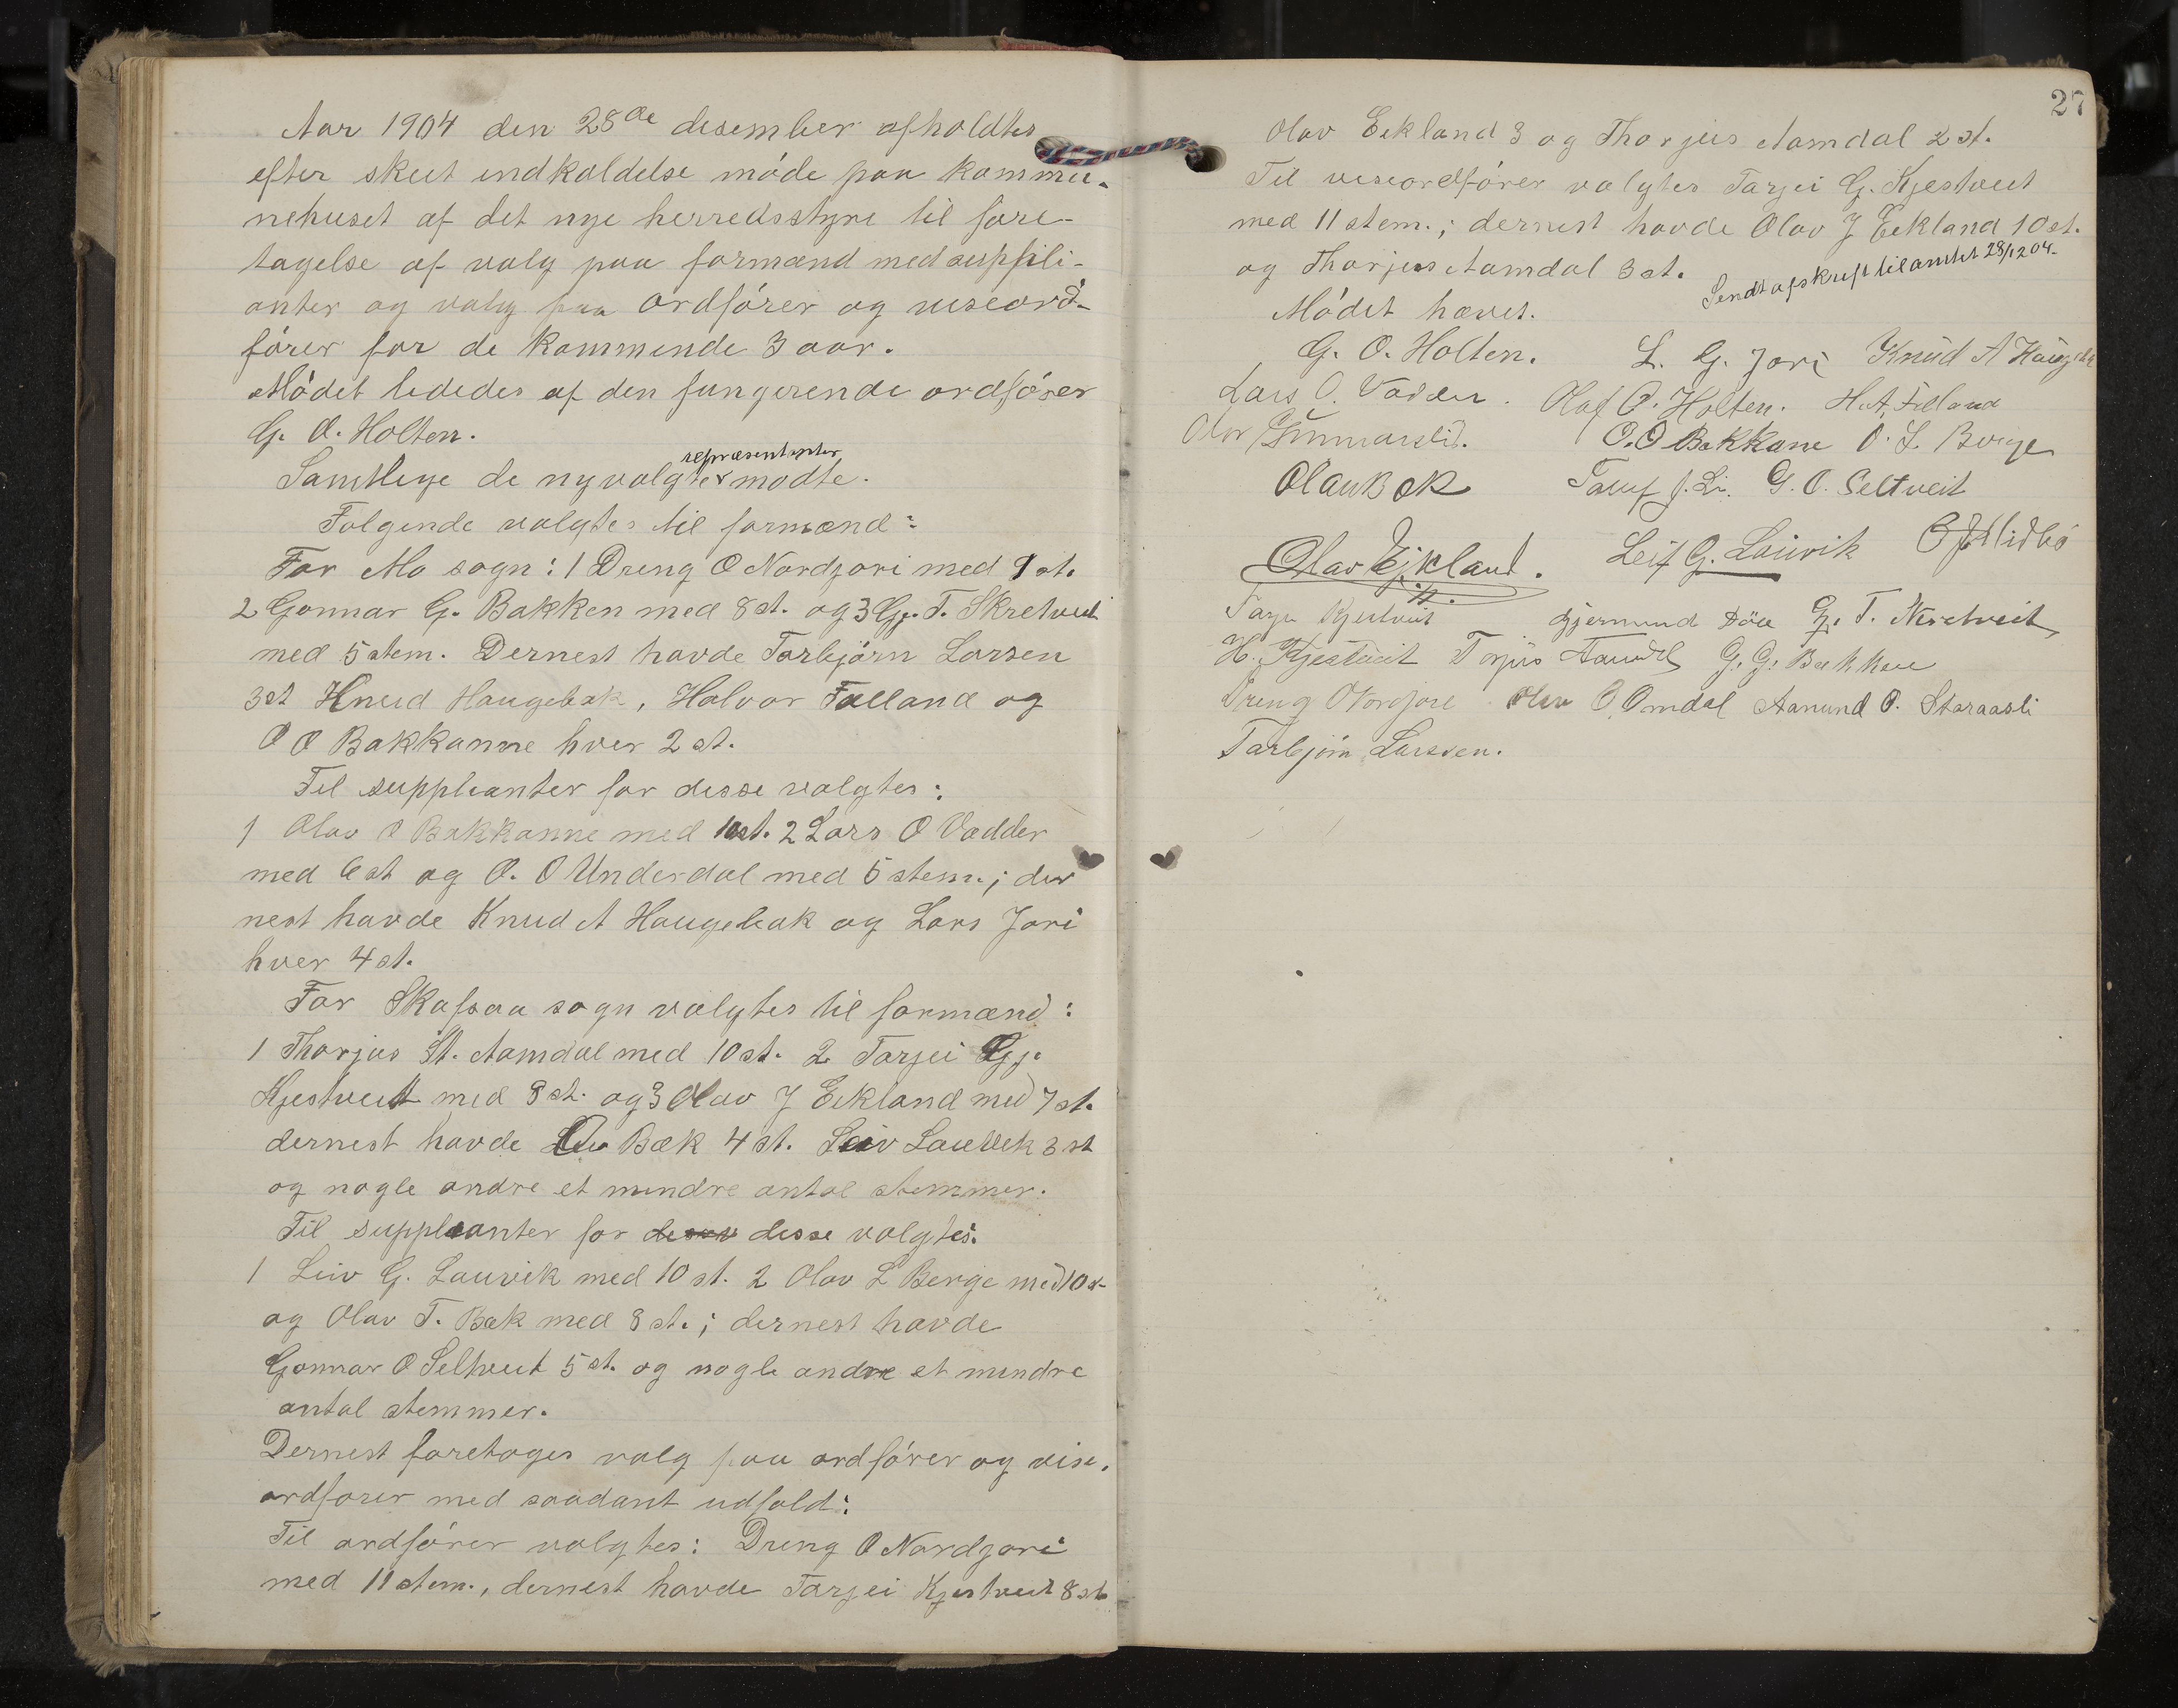 Aar 1904 den 28de desember afholdtes
efter skeet indkaldelse møde paa kommu-
nehuset af det nye herredsstyre til fore-
tagelse af valg paa formænd med suppli-
anter og valg paa ordfører og viseord-
fører for de kommende 3 aar.
Mødet lededes af den fungerende ordfører
G. O. Holten.
representanter
Samtlige de nyvalgte mødte.
Følgende valgtes til formænd:
For Mo sogn: 1 Dreng O Nordgori med 9 st.
2 Gonnar G. Bakken med 8 st. og 3 Gj. T. Skretveit
med 5 stem. Dernest havde Torbjørn Larsen
3 st Knud Haugebak, Halvor Felland og
O O Bakkanne hver 2 st.
Til suppleanter for disse valgtes:
1 Olav O Bakkanne med 10 st. 2 Lars O Vadder
med 6 st og O. O Underdal med 5 stem.; der
nest havde Knud A Haugebak og Lars Jori
hver 4 st.
For Skafsaa sogn valgtes til formænd:
1 Thorjus St. Aamdal med 10 st. 2 Tarjei Gj.
Kjestveit med 8 st. og 3 Olav J Eikland med 7 st.
dernest havde Bæk 4 st. Leiv Lauvik 3 st
og nogle andre et mindre antal stemmer.
Til suppleanter for disse valgtes:
1 Leiv G. Lauvik med 10 st. 2 Olav L Berge med 10 st
og Olav T. Bæk med 8 st.; dernest havde
Gonnar O Seltveit 5 st. og nogle andre et mindre
antal stemmer.
Dernest foretoges valg paa ordfører og vise.
ordfører med saadant udfald:
Til ordfører valgtes: Dreng O Nordgori
med 11 stem., dernest havde Tarjei Kjestveit 8 st.
27
Olav Eikland 3 og Thorjus Aamdal 2 st.
Til viseordfører valgtes Tarjei G. Kjestveit
med 11 stem.; dernest havde Olav J Eikland 10 st.
og Thorjus Aamdal 3 st.
Sendt afskrift til amtet 28/12 04.
Mødet hævet.
G. O. Holten. L. G. Jori Knud A
Lars O. Vadder. Olaf O. Holten. H. A. Felland
Olav O. O Bakkane O. L. Berge
Olau Bæk J. Li. G. O. Seltveit
Olav Ejkland. Leif G. Lauvik
Tarjei Kjestveit Gjermund G. T.
H. Kjestveit Torjus Aamdal G. G. Bakken
Dreng O Nordjore Olav O. Omdal Aanund O. Storaasli
Torbjørn Larssen.